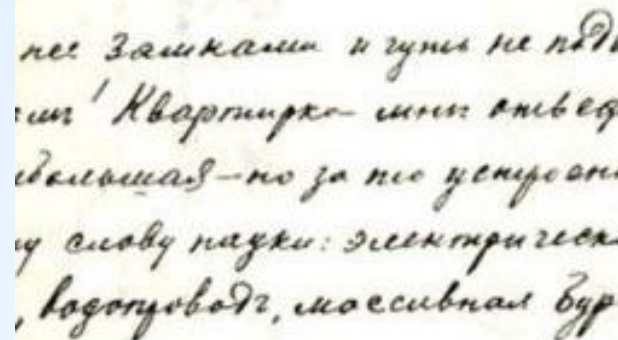 нее замками и чуть не подъ
ями! Квартирка мнѣ отвед
небольшая — но за то устроен
му слову науки: электрическ
, водопроводъ, массивная бур